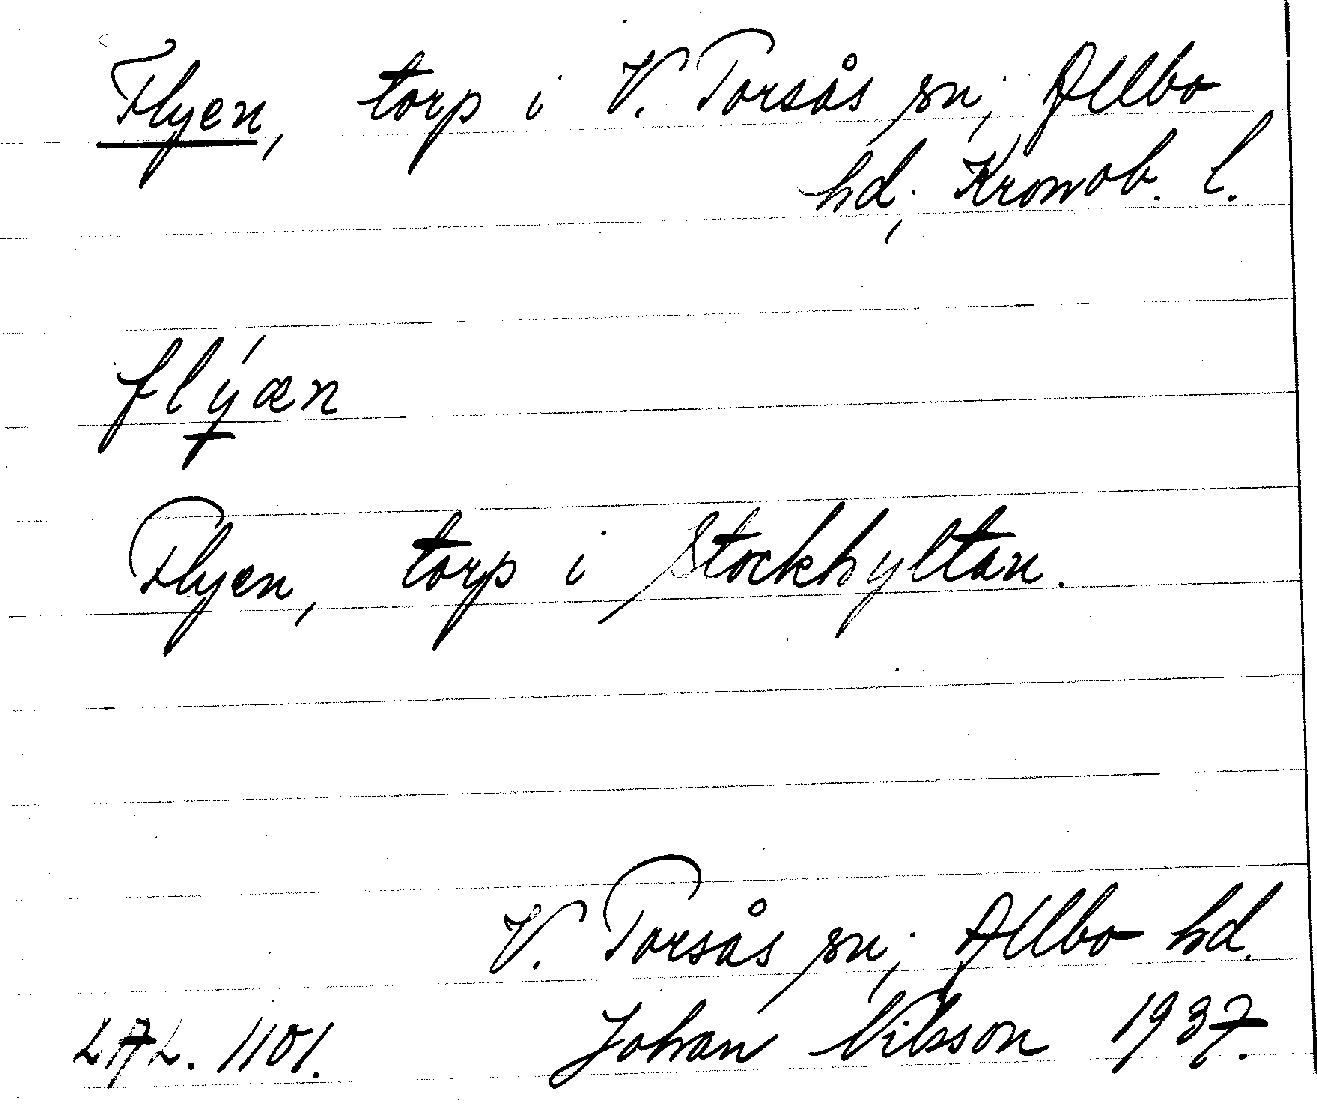 Flyen, torp i V. Torsås sn; Allbo
hd; Kronob. l.
flýæn
Flyen, torp i Stockhyltan.
V. Torsås sn; Allbo hd.
LAL. 1101. Johan Nilsson 1937.